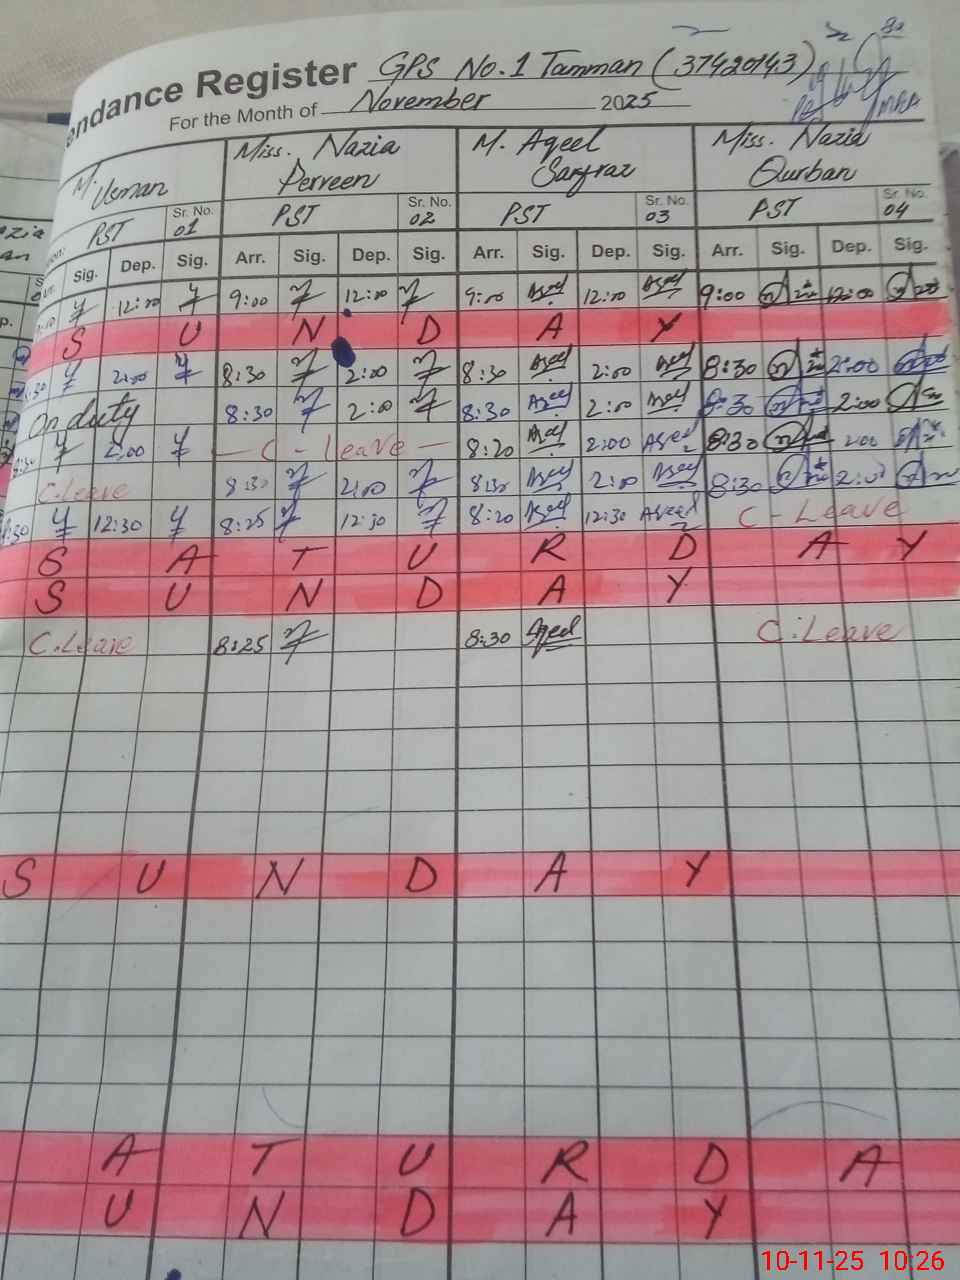 endance Register GPS No.1 Tamman (37420143)
For the Month of November 2025
M. Usman Miss. Nazia Perveen M. Aqeel Sarfraz Miss. Nazia Qurban
PST Sr. No. 01 PST Sr. No. 02 PST Sr. No. 03 PST Sr. No. 04
Sig. Dep. Sig. Arr. Sig. Dep. Sig. Arr. Sig. Dep. Sig. Arr. Sig. Dep. Sig.
12:00 9:00 12:00 9:00 Aqeel 12:00 Aqeel 9:00 12:00
S U N D A Y
2:00 8:30 2:00 8:30 Aqeel 2:00 Aqeel 8:30 2:00
On duty 8:30 2:00 8:30 Aqeel 2:00 Aqeel 8:30 2:00
2:00 C - Leave 8:20 Aqeel 2:00 Aqeel 8:30 2:00
C.Leave 8:30 2:00 8:30 Aqeel 2:00 Aqeel 8:30 2:00
12:30 8:25 12:30 8:20 Aqeel 12:30 Aqeel C - Leave
S A T U R D A Y
S U N D A Y
C.Leave 8:25 8:30 Aqeel C.Leave
S U N D A Y
A T U R D A
U N D A Y
10-11-25 10:26